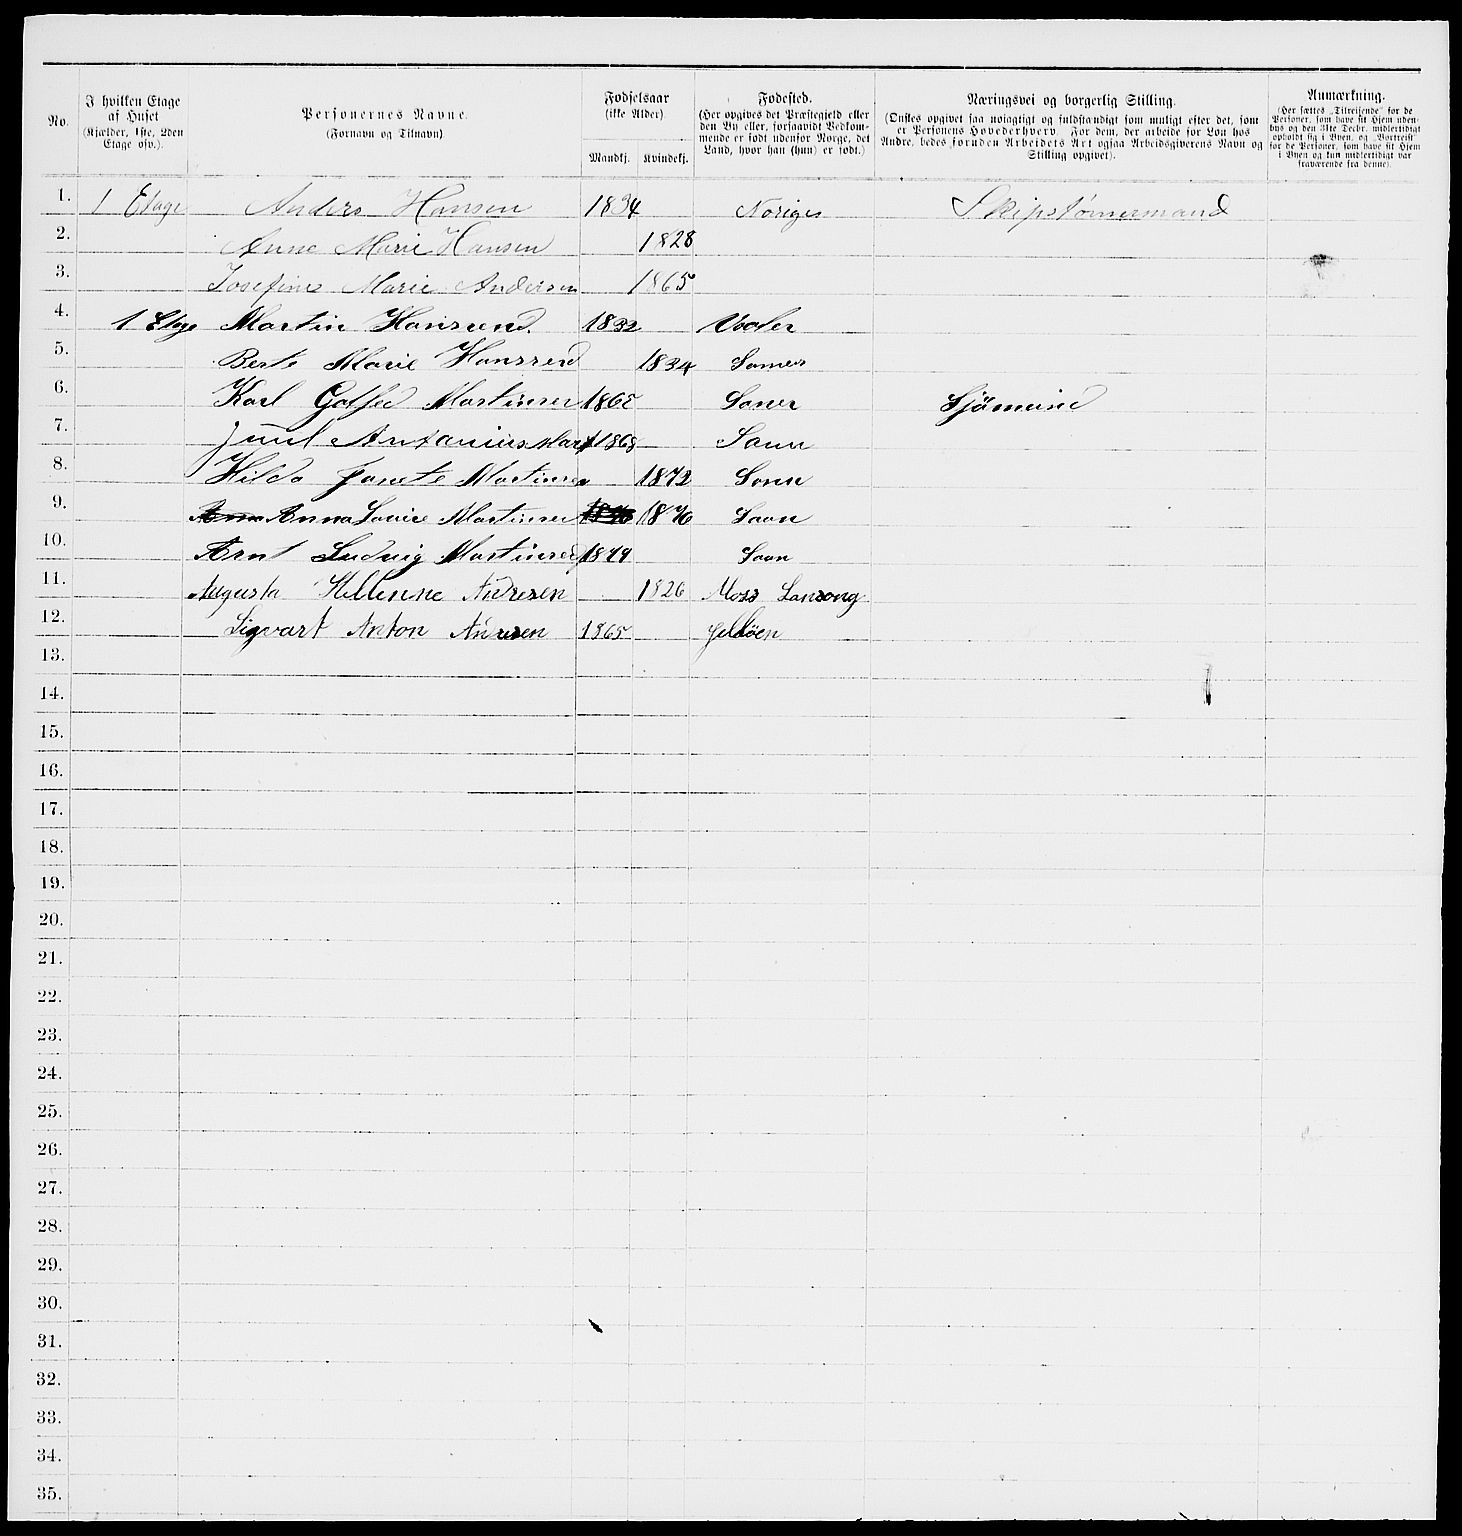 No.
I hvilken Etage
af Huset
(Kjælder, 1ste, 2den
Etage osv.).
Personernes Navne.
(Fornavn og Tilnavn).
Fødselsaar
(ikke Alder).
Mandkj. Kvindekj.
Fødested.
(Her opgives det Præstegjeld eller
den By eller, forsaavidt Vedkom-
mende er født udenfor Norge, det
Land, hvor han (hun) er født.)
Næringsvei og borgerlig Stilling.
(Ønskes opgivet saa nøiagtigt og fuldstændigt som muligt efter det, som
er Personens Hovederhverv. For dem, der arbeide for Løn hos
Andre, bedes foruden Arbeidets Art ogsaa Arbeidsgiverens Navn og
Stilling opgivet).
Anmærkning.
(Her sættes „Tilreisende“ for de
Personer, som have sit Hjem uden-
bys og den 31te Decbr. midlertidigt
opholdt sig i Byen, og „Bortreist“
for de Personer, som have sit Hjem
i Byen og kun midlertidigt var
fraværende fra denne).
1. 1 Etage Anders Hansen 1834 Noriges Skipstømermand
2. Anne Marie Hansen 1828
3. Josefine Marie Andersen 1865
4. 1 Etage Martin Hansend. 1832 Vaaler
5. Berte Marie Hanssend 1834 Soner
6. Karl Gotfed Martinsen Soner Sjømand
7. Juul Antonius Mart 1868 Sonn
8. Hilda Janete Martinsen 1872 Sonn
9. Anna Lovice Martinsen 1876 Soon
10. Arnt Ludvig Martinsen 1879 Soon
11. Augusta Hellenne Andresen 1826 Moss Lansong
12. Sigvart Anton Andresen 1865 Jelløen
13.
14.
15.
16.
17.
18.
19.
20.
21.
22.
23.
24.
25.
26.
27.
28.
29.
30.
31.
32.
33.
34.
35.